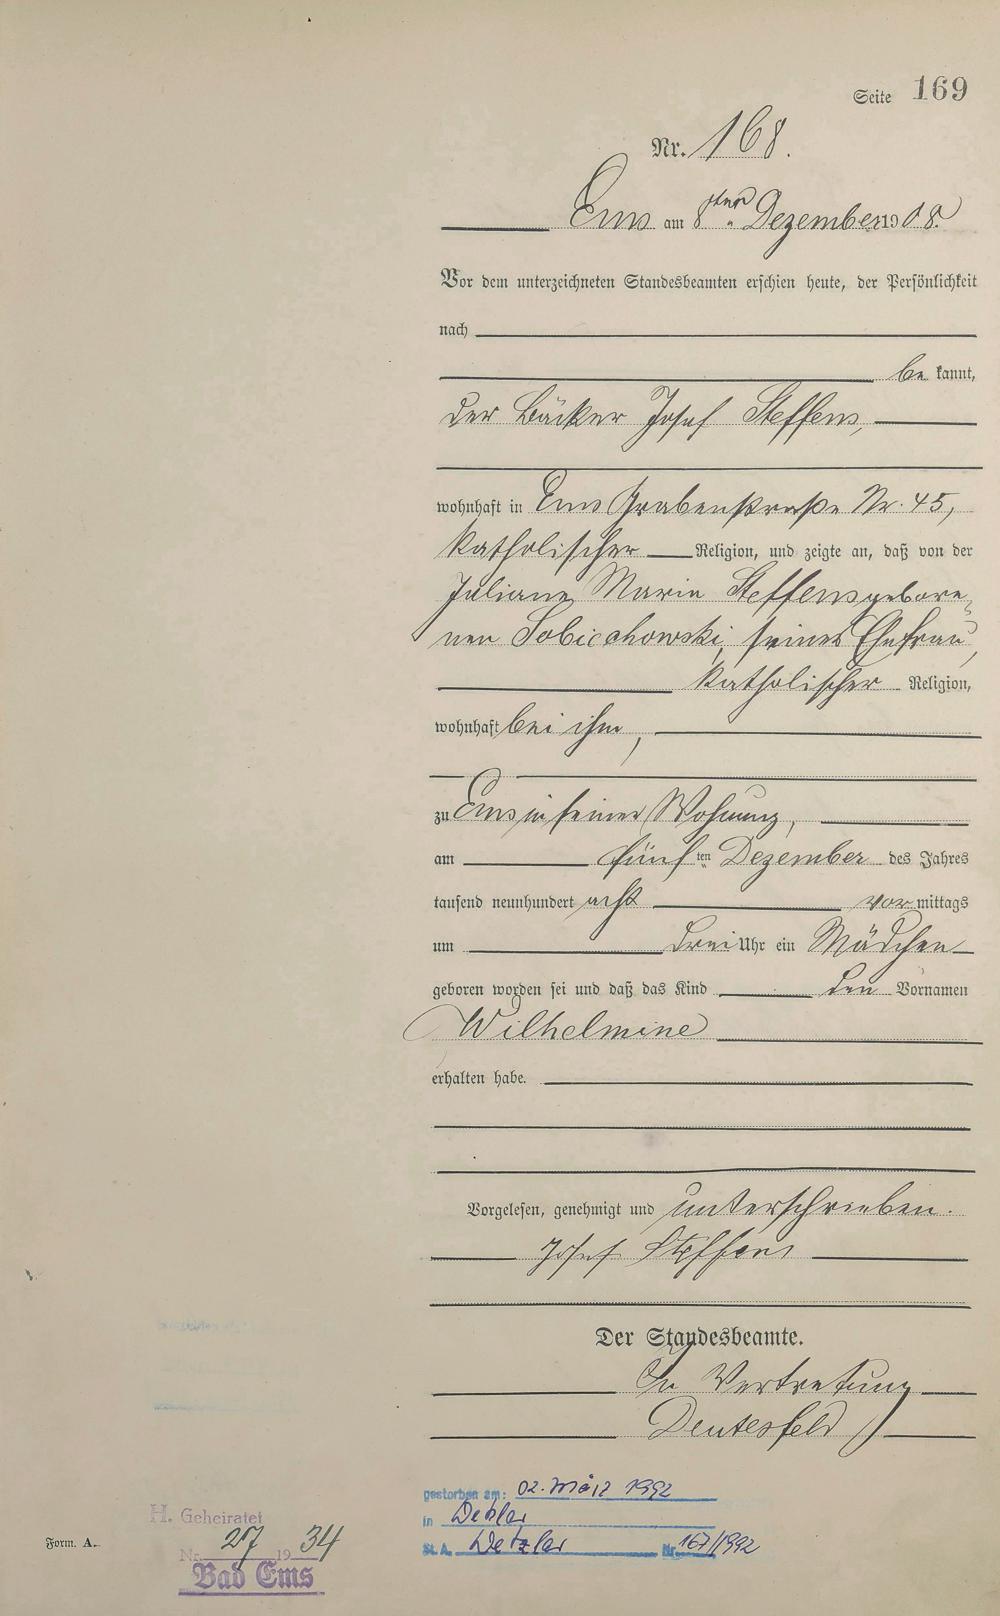 Seite 169
Nr. 168.
Ems am 8ten Dezember 1908.
Vor dem unterzeichneten Standesbeamten erschien heute, der Persönlichkeit
nach
be kannt,
der Bäcker Josef Steffens,
wohnhaft in Ems Grabenstraße Nr. 45,
katholischer Religion, und zeigte an, daß von der
Juliane Maria Steffens gebore-
nen Sobiechowski, seiner Ehefrau,
katholischer Religion,
wohnhaft bei ihm,
zu Ems in seiner Wohnung,
am fünften Dezember des Jahres
tausend neunhundert acht vormittags
um drei Uhr ein Mädchen
geboren worden sei und daß das Kind den Vornamen
Wilhelmine
erhalten habe.
Vorgelesen, genehmigt und unterschrieben.
Josef Steffens
Der Standesbeamte.
In Vertretung
gestorben am: 02. März 1992
in Wetzlar
St.A. Wetzlar Nr. 167/1992
H. Geheiratet
Nr. 27 1934
Bad Ems
Form. A.